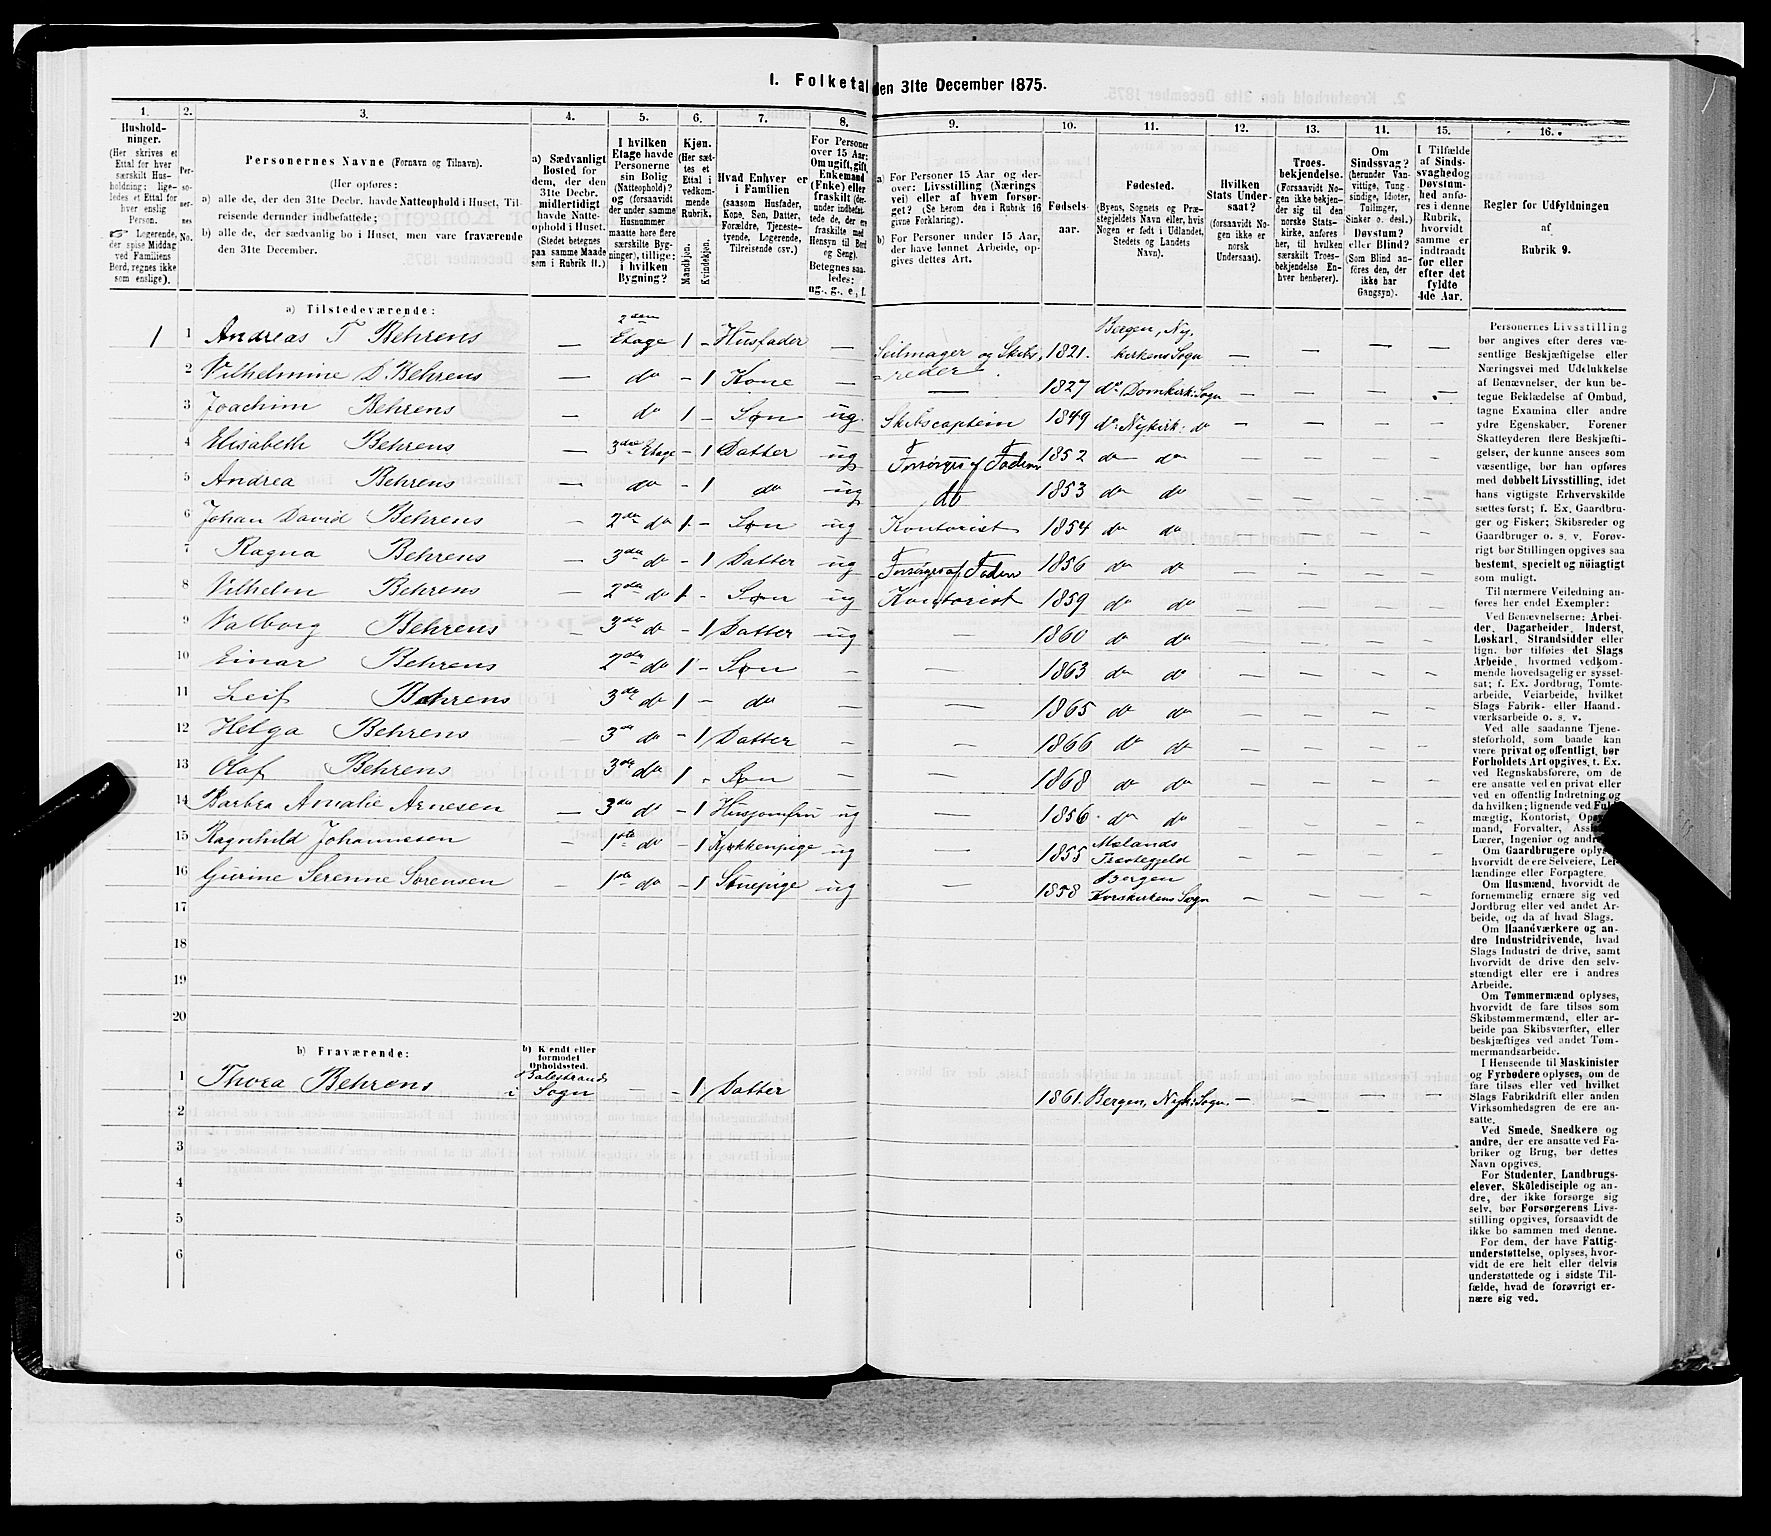 I. Folketal den 31te December 1875.
1. 2. 3. 4. 5. 6. 7. 8. 9. 10. 11. 12. 13. 14. 15. 16.
Husholdninger.
(Her skrives et Ettal for hver særskilt Husholdning; ligeledes et Ettal for hver enslig Person.
Logerende, der spise Middag ved Familiens Bord, regnes ikke som enslige).
Personernes No.
Personernes Navne (Fornavn og Tilnavn).
(Her opføres:
a) alle de, der den 31te Decbr. havde Natteophold i Huset, Tilreisende derunder indbefattede;
b) alle de, der sædvanlig bo i Huset, men vare fraværende den 31te December.
a) Sædvanligt Bosted for dem, der den 31te Decbr. midlertidigt havde Natteophold i Huset. (Stedet betegnes paa samme Maade som i Rubrik 11.)
I hvilken Etage havde Personerne sin Bolig (Natteophold)? og (forsaavidt der under samme Husnummer maatte høre flere særskilte Bygninger), tillige: i hvilken Bygning?
Kjøn. (Her sættes et Ettal i vedkommende Rubrik.
Mandkjøn. Kvindekjøn.
Hvad Enhver er i Familien (saasom Husfader, Kone, Søn, Datter, Forældre, Tjenestetyende, Logerende, Tilreisende osv.)
For Personer over 15 Aar: Om ugift, gift, Enkemand (Enke) eller fraskilt (derunder indbefattede de, der ere fraskilte med Hensyn til Bord og Seng). Betegnes saaledes: ug., g., e., f.
a) For Personer 15 Aar og derover: Livsstilling (Næringsvei) eller af hvem forsørget? (Se herom den i Rubrik 16 givne Forklaring).
b) For Personer under 15 Aar, der have lønnet Arbeide, opgives dettes Art.
Fødselsaar.
Fødested.
(Byens, Sognets og Præstegjeldets Navn eller, hvis Nogen er født i Udlandet, Stedets og Landets Navn).
Hvilken Stats Undersaat? (forsaavidt Nogen ikke er norsk Undersaat).
Troesbekjendelse. (Forsaavidt Nogen ikke bekjender sig til den norske Statskirke, anføres her, til hvilken særskilt Troesbekjendelse Enhver henhører).
Om Sindssvag? (herunder Vanvittige, Tungsindige, Idioter, Tullinger, Sinker o. desl.) Døvstum? eller Blind? (Som Blind anføres den, der ikke har Gangsyn).
I Tilfælde af Sindssvaghed og Døvstumhed anføres i denne Rubrik, hvorvidt samme er indtraadt før eller efter det fyldte 4de Aar.
Regler for Udfyldningen af Rubrik 9.
a) Tilstedeværende:
1 1 Andreas T Behrens — 2den Etage 1 – Husfader — Seilmager og Skibsreder. 1821. Bergen, Nykirkens Sogn — — — —
2 Vilhelmine D. Behrens — do – 1 Kone — — 1827 do Domkirk: Sogn — — — —
3 Joachim Behrens — do 1 – Søn ug. Skibscaptein 1849 do Nykirk: do — — — —
4 Elisabeth Behrens — 3die Etage – 1 Datter ug Forsørges af Faderen 1852 do do — — — —
5 Andrea Behrens — do – 1 do ug do 1853 do do — — — —
6 Johan David Behrens — 2den do 1 – Søn ug Kontorist 1854 do do — — — —
7 Ragna Behrens — 3die do – 1 Datter ug Forsørges af Faderen 1856 do do — — — —
8 Vilhelm Behrens — 2den do 1 – Søn ug Kontorist 1859 do do — — — —
9 Valborg Behrens — 3die do – 1 Datter ug — 1860 do do — — — —
10 Einar Behrens — 2den do 1 – Søn — — 1863 do do — — — —
11 Leif Behrens — 3die do 1 – do — — 1865 do do — — — —
12 Helga Behrens — 3die do – 1 Datter — — 1866 do do — — — —
13 Olaf Behrens — 3die do 1 – Søn — — 1868 do do — — — —
14 Barbra Amalie Arnesen — 3die do – 1 Husjomfru ug — 1856 do do — — — —
15 Ragnhild Johannesen — 1ste do – 1 Kjøkkenpige ug — 1855 Mølands Præstegjeld — — — —
16 Gurine Serenne Sørensen — 1ste do – 1 Stuepige ug — 1858 Bergen Korskirkens Sogn — — — —
17
18
19
20
b) Fraværende:
b) Kjendt eller formodet Opholdssted.
1 Thora Behrens Balestrand i Sogn — – 1 Datter 1861. Bergen, Nyk: Sogn. — — — —
2
3
4
5
6
Personernes Livsstilling
bør angives efter deres væsentlige
Beskjæftigelse eller
Næringsvei med Udelukkelse
af Benævnelser, der kun betegne
Beklædelse af Ombud,
tagne Examina eller andre
ydre Egenskaber. Forener
Skatteyderen flere Beskjæftigelser,
der kunne ansees som
væsentlige, bør han opføres
med dobbelt Livsstilling, idet
hans vigtigste Erhvervskilde
sættes først; f. Ex. Gaardbruger
og Fisker; Skibsreder og
Gaardbruger o. s. v. Forøvrigt
bør Stillingen opgives saa
bestemt, specielt og nöiagtigt
som muligt.
Til nærmere Veiledning anføres
her endel Exempler:
Ved Benævnelserne: Arbeider,
Dagarbeider, Inderst,
Løskarl, Strandsidder eller
lign. bør tilføies det Slags
Arbeide, hvormed vedkommende
hovedsagelig er sysselsat;
f. Ex. Jordbrug, Tomtearbeide,
Veiarbeide, hvilket
Slags Fabrik- eller Haandværksarbeide
o. s. v.
Ved alle saadanne Tjenesteforhold,
som baade kan
være privat og offentligt, bør
Forholdets Art opgives, t. Ex.
ved Regnskabsførere, om de
ere ansatte ved en privat eller
ved en offentlig Indretning og
da hvilken; lignende ved
mægtig, Kontorist,
mand, Forvalter,
Lærer, Ingeniør og
Om Gaardbrugere oplyses,
hvorvidt de ere Selveiere, Leilændinge
eller Forpagtere.
Om Husmænd, hvorvidt de
fornemmelig ernære sig ved
Jordbrug eller ved andet Arbeide,
og da af hvad Slags.
Om Haandværkere og andre
Industridrivende, hvad
Slags Industri de drive, samt
hvorvidt de drive den selvstændigt
eller ere i andres
Arbeide.
Om Tømmermænd oplyses,
hvorvidt de fare tilsøs som
Skibstømmermænd, eller arbeide
paa Skibsværfter, eller
beskjæftiges ved andet Tømmermandsarbeide.
I Henseende til Maskinister
og Fyrbødere oplyses, om de
fare tilsøs eller ved hvilket
Slags Fabrikdrift eller anden
Virksomhedsgren de ere ansatte.
Ved Smede, Snedkere og
andre, der ere ansatte ved Fabriker
og Brug, bør dettes
Navn opgives.
For Studenter, Landbrugselever,
Skoledisciple og andre,
der ikke forsørge sig
selv, bør Forsørgerens Livsstilling
opgives, forsaavidt de
ikke bo sammen med denne.
For dem, der have Fattigunderstøttelse,
oplyses, hvorvidt
de ere helt eller delvis
understøttede og i sidste Tilfælde,
hvad de forøvrigt ernære
sig ved.